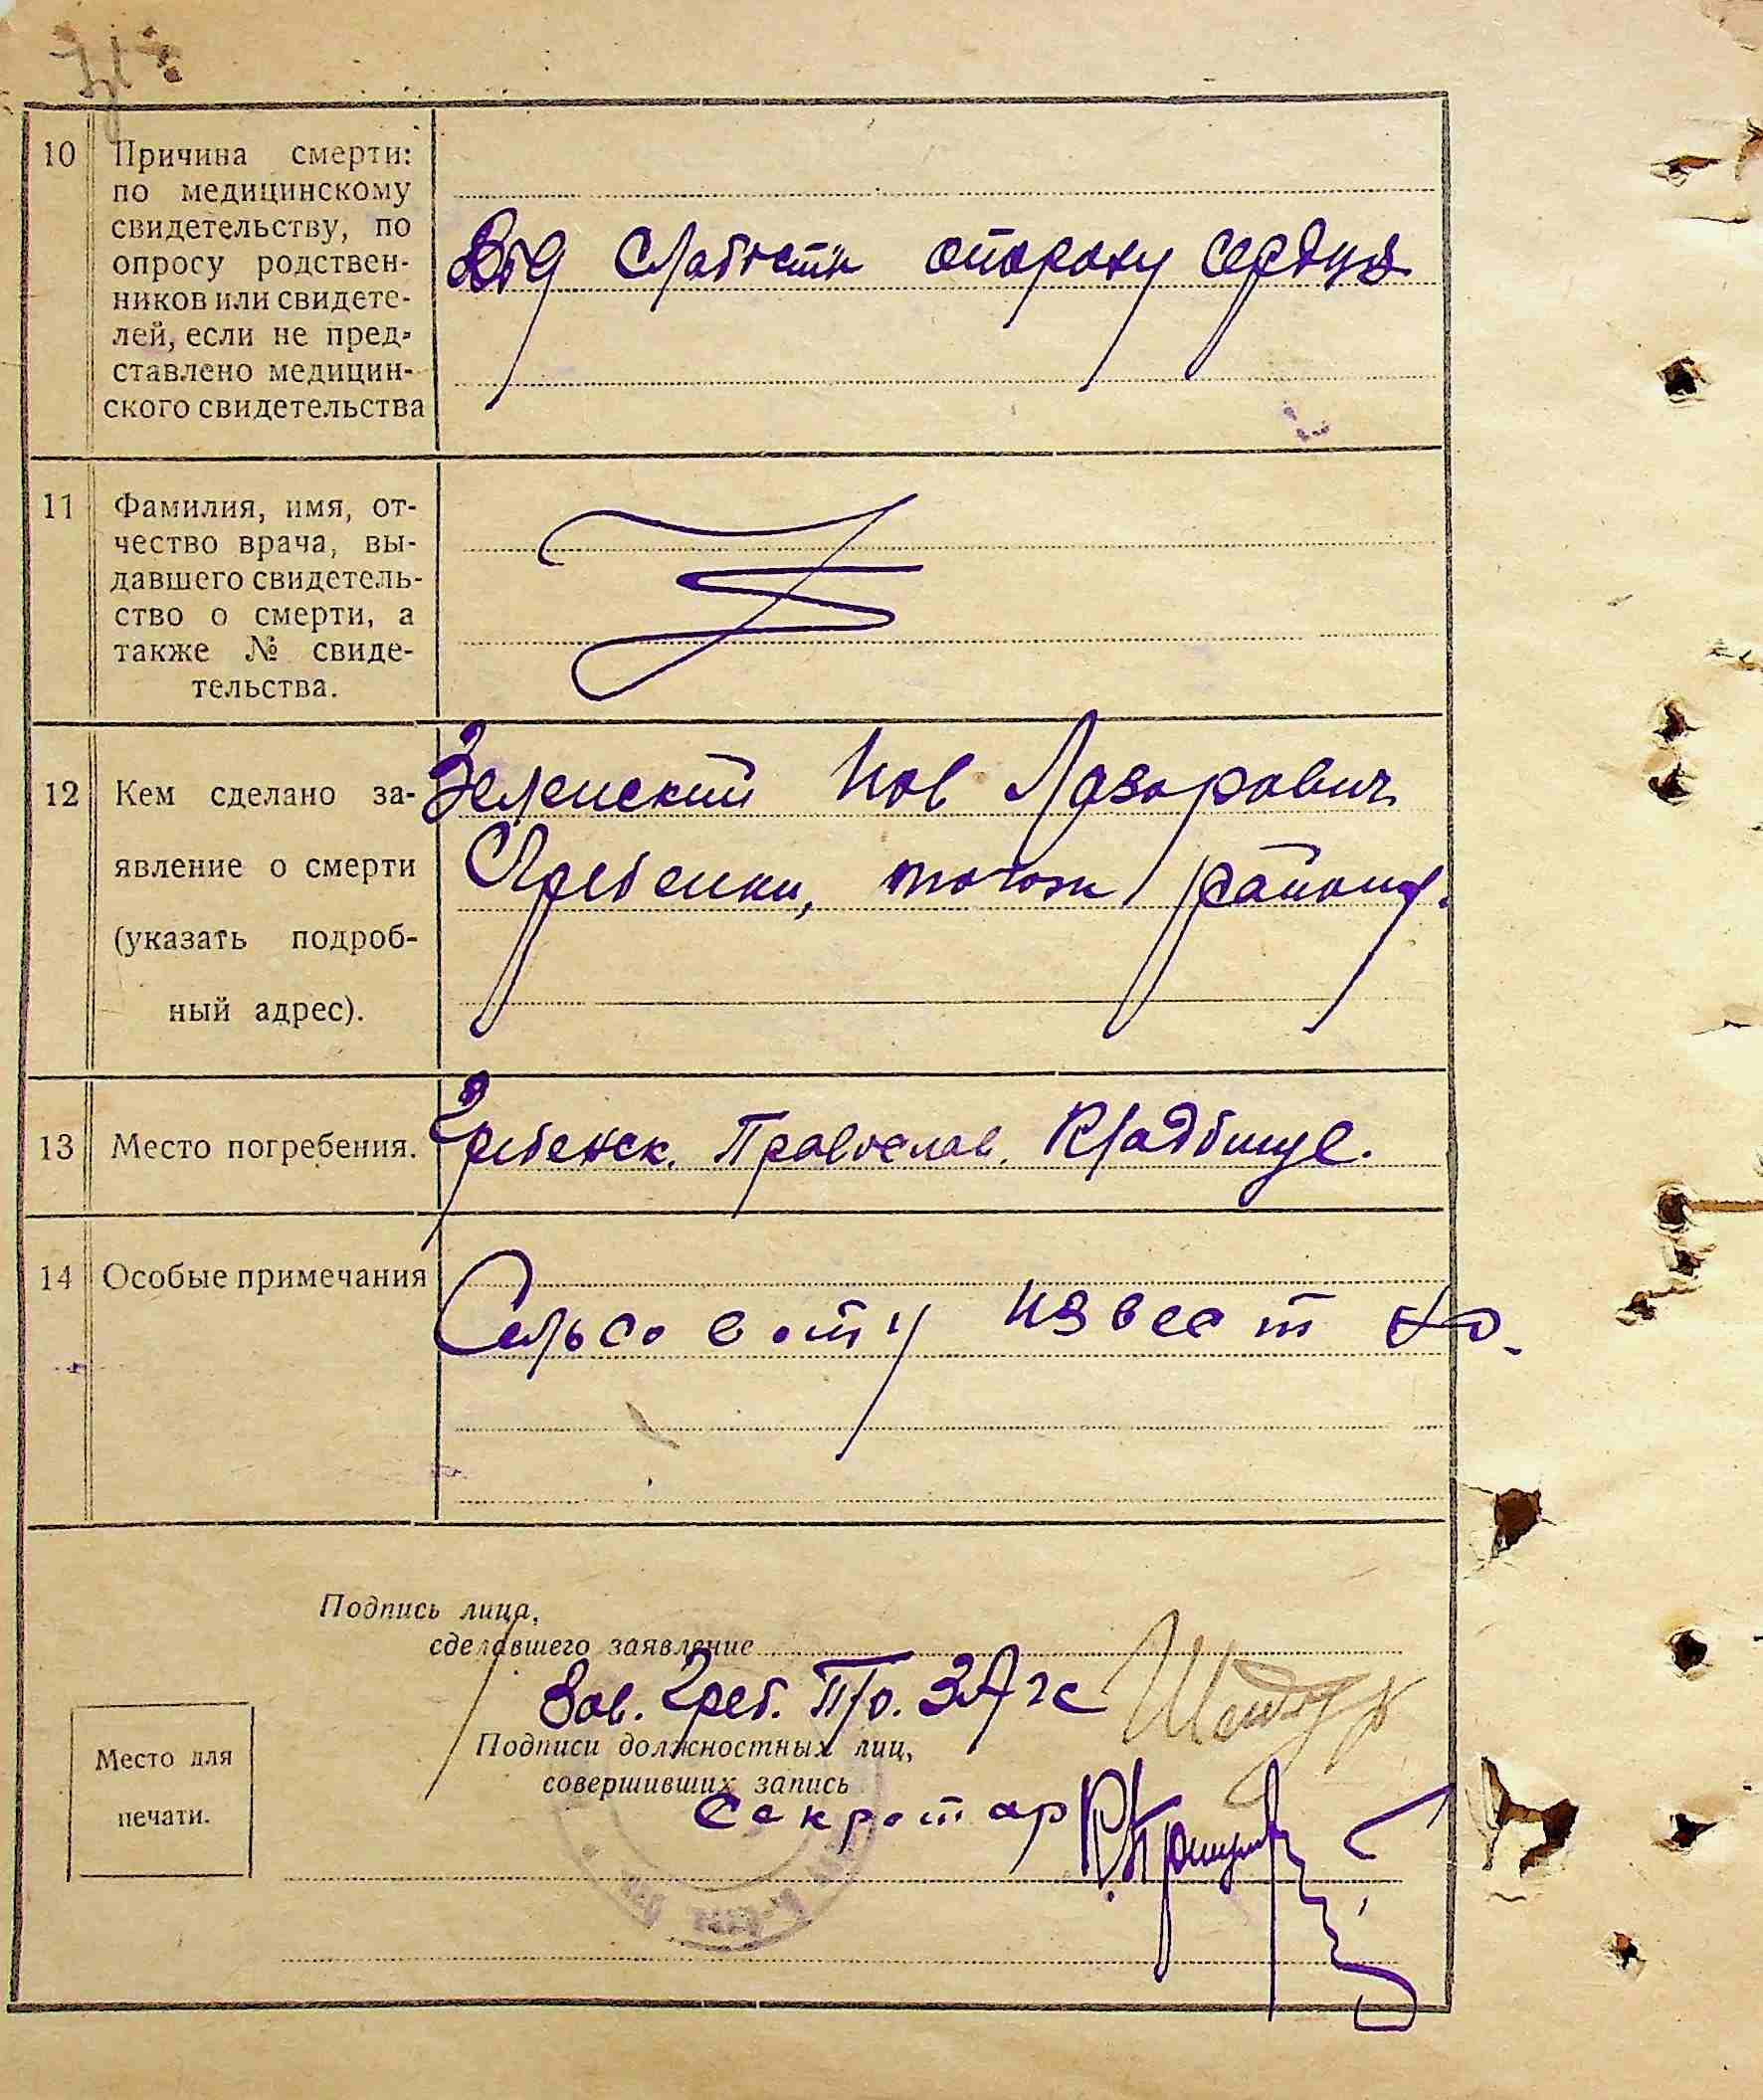 10 Причина смерти:
по медицинскому
свидетельству, по
опросу родствен-
ников или свидете-
лей, если не пред-
ставлено медицин-
ского свидетельства
Від слабости опороку сердця
11 Фамилия, имя, от-
чество врача, вы-
давшего свидетель-
ство о смерти, а
также № свиде-
тельства.
12 Кем сделано за-
явление о смерти
(указать подроб-
ный адрес).
Зеленский Иов Лазарович
Гребенки, того ж району.
13 Место погребения.
Гребенск. Православ. Кладбище.
14 Особые примечания
Сельсовету известно.
Подпись лица,
сделавшего заявление
Зав. Греб. П/о. ЗАгс
Подписи должностных лиц,
совершивших запись
Секретар
Место для
печати.